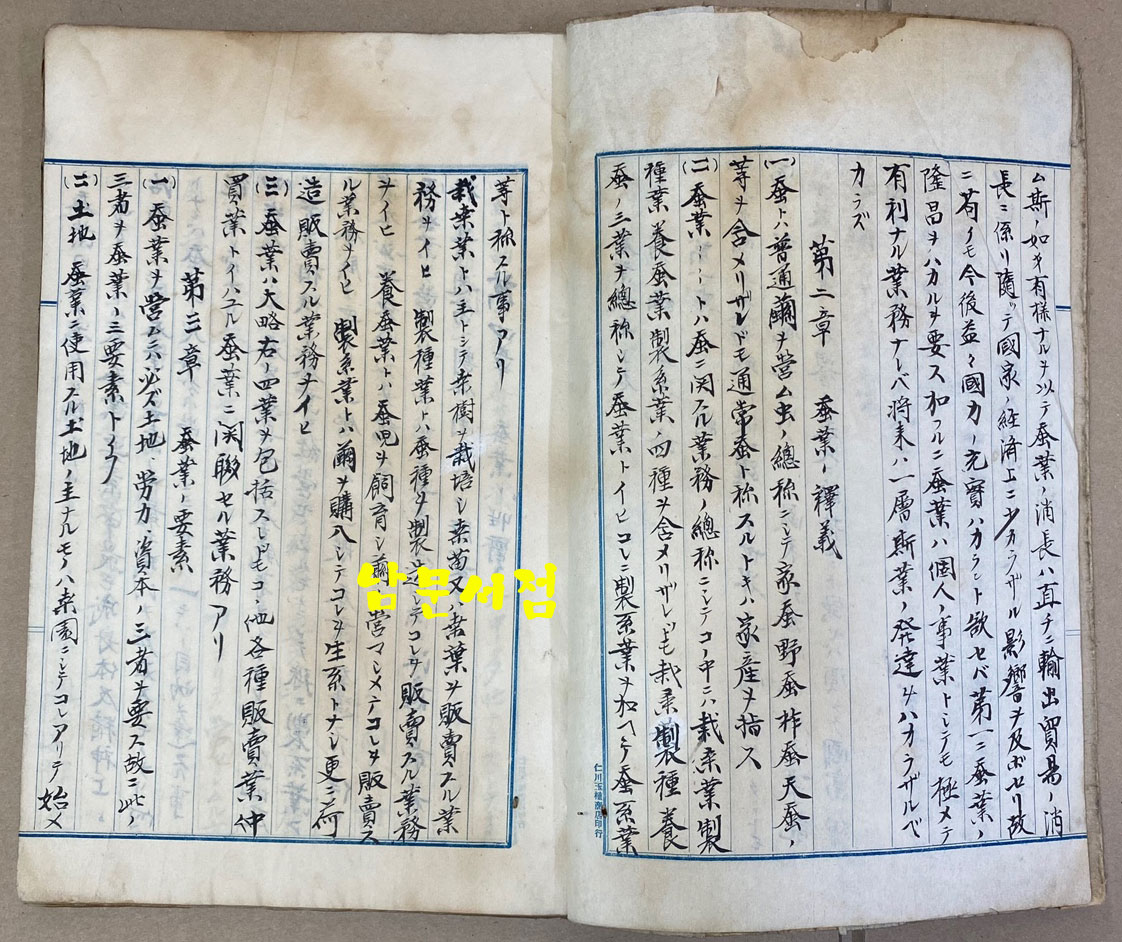 ム斯ノ如キ有様ナルヲ以テ蚕業ノ消長ハ直チニ輸出貿易ノ消
長ニ係リ随ッテ國家ノ経済上ニ少カラザル影響ヲ及ボセリ故
ニ苟クモ今後益々國力ノ充實ハカラント欲セバ第一ニ蚕業ノ
隆昌ヲハカルヲ要ス加フルニ蚕業ハ個人ノ事業トシテモ極メテ
有利ナル業務ナレバ将来ハ一層斯業ノ発達ヲハカラザルベ
カラズ
第二章 蚕業ノ釋義
(一) 蚕トハ普通繭ヲ営ム虫ノ總称ニシテ家蚕野蚕柞蚕天蚕ノ
等ヲ含メリザレドモ通常蚕ト称スルトキハ家産ヲ指ス
(二) 蚕業トハ蚕ニ関スル業務ノ總称ニシテコノ中ニハ栽桑業製
種業養蚕業製糸業ノ四種ヲ含メリザレッドモ栽桑製種養
蚕ノ三業ヲ總称シテ蚕業トイヒコレニ製糸業ヲ加ヘテ蚕糸業
等ト称スル事アリ
栽桑業トハ主トシテ桑樹ヲ栽培シ桑苗又ハ桑葉ヲ販賣スル業
務ヲイヒ 製種業トハ蚕種ヲ製造シテコレヲ販賣スル業務
ヲイヒ 養蚕業トハ蚕児ヲ飼育シ繭 営マシメテコレヲ販賣ス
ル業務ヲイヒ 製糸業トハ繭ヲ購入シテコレヲ生糸トナシ更ニ荷
造販賣スル業務ヲイヒ
(三) 蚕業ハ大略右ノ四業ヲ包括スレドモコノ他各種販賣業仲
買業トイハユル蚕業ニ関聯セル業務アリ
第三章 蚕業ノ要素
(一) 蚕業ヲ営ムニハ必ズ土地 労力 資本ノ三者ヲ要ス故ニ此ノ
三者ヲ蚕業ノ三要素トイフ
(二) 土地 蚕業ニ使用スル土地ノ主ナルモノハ桑園ニシテコレアリテ始メ
仁川玉種商店印行
남문서점